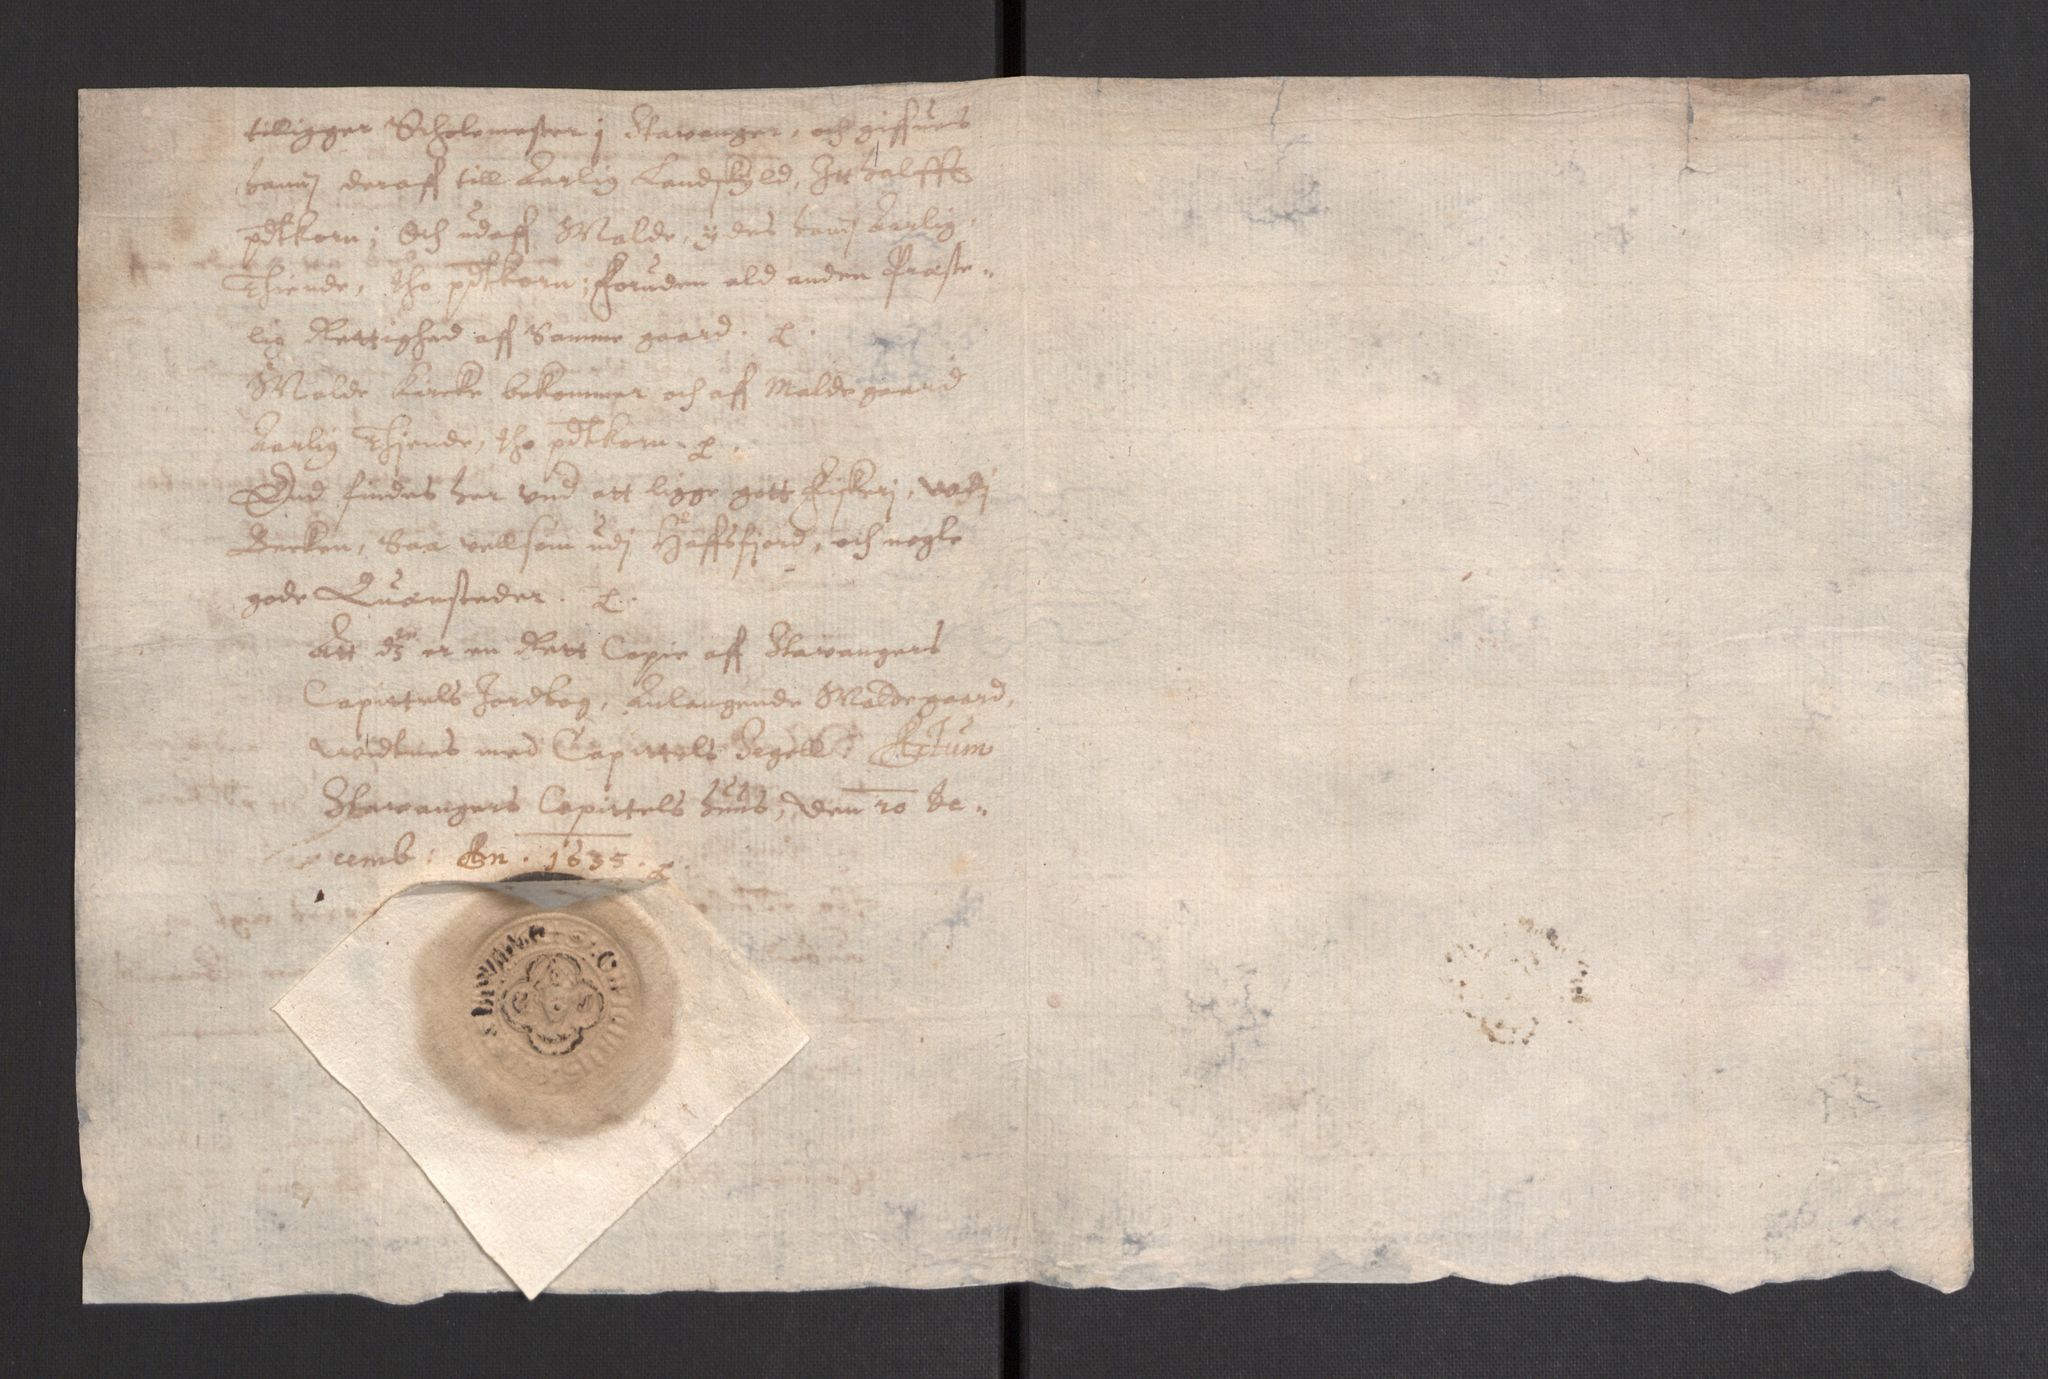 tilligger Scholemester j Stavanger, och giffues
hannj deraff till Aarlig Landskyld, Itt halfft
pdtkorn; Och udaff Malde, ydes hannj Aarlig,
Thiende, tho pdtkorn; Foruden ald anden Præste-
lig Rettighed aff Samme gaard.
Malde Kircke bekommer och aff Malde gaard
Aarlig Thjende, tho pdtkorn.
End findes her ved att ligge gott Fiskerj, vdj
Becken, Saa vellsom udj Haffsfjord, och nogle
gode Quærnsteder.
Att dz en er en Rett Copie aff Stavangers
Capittels Jordbog, Anlangende Malde gaard,
vidtnes med Capittels Segell. Actum
Stavangers Capittels huus, den 10 De-
cemb: An. 1635.